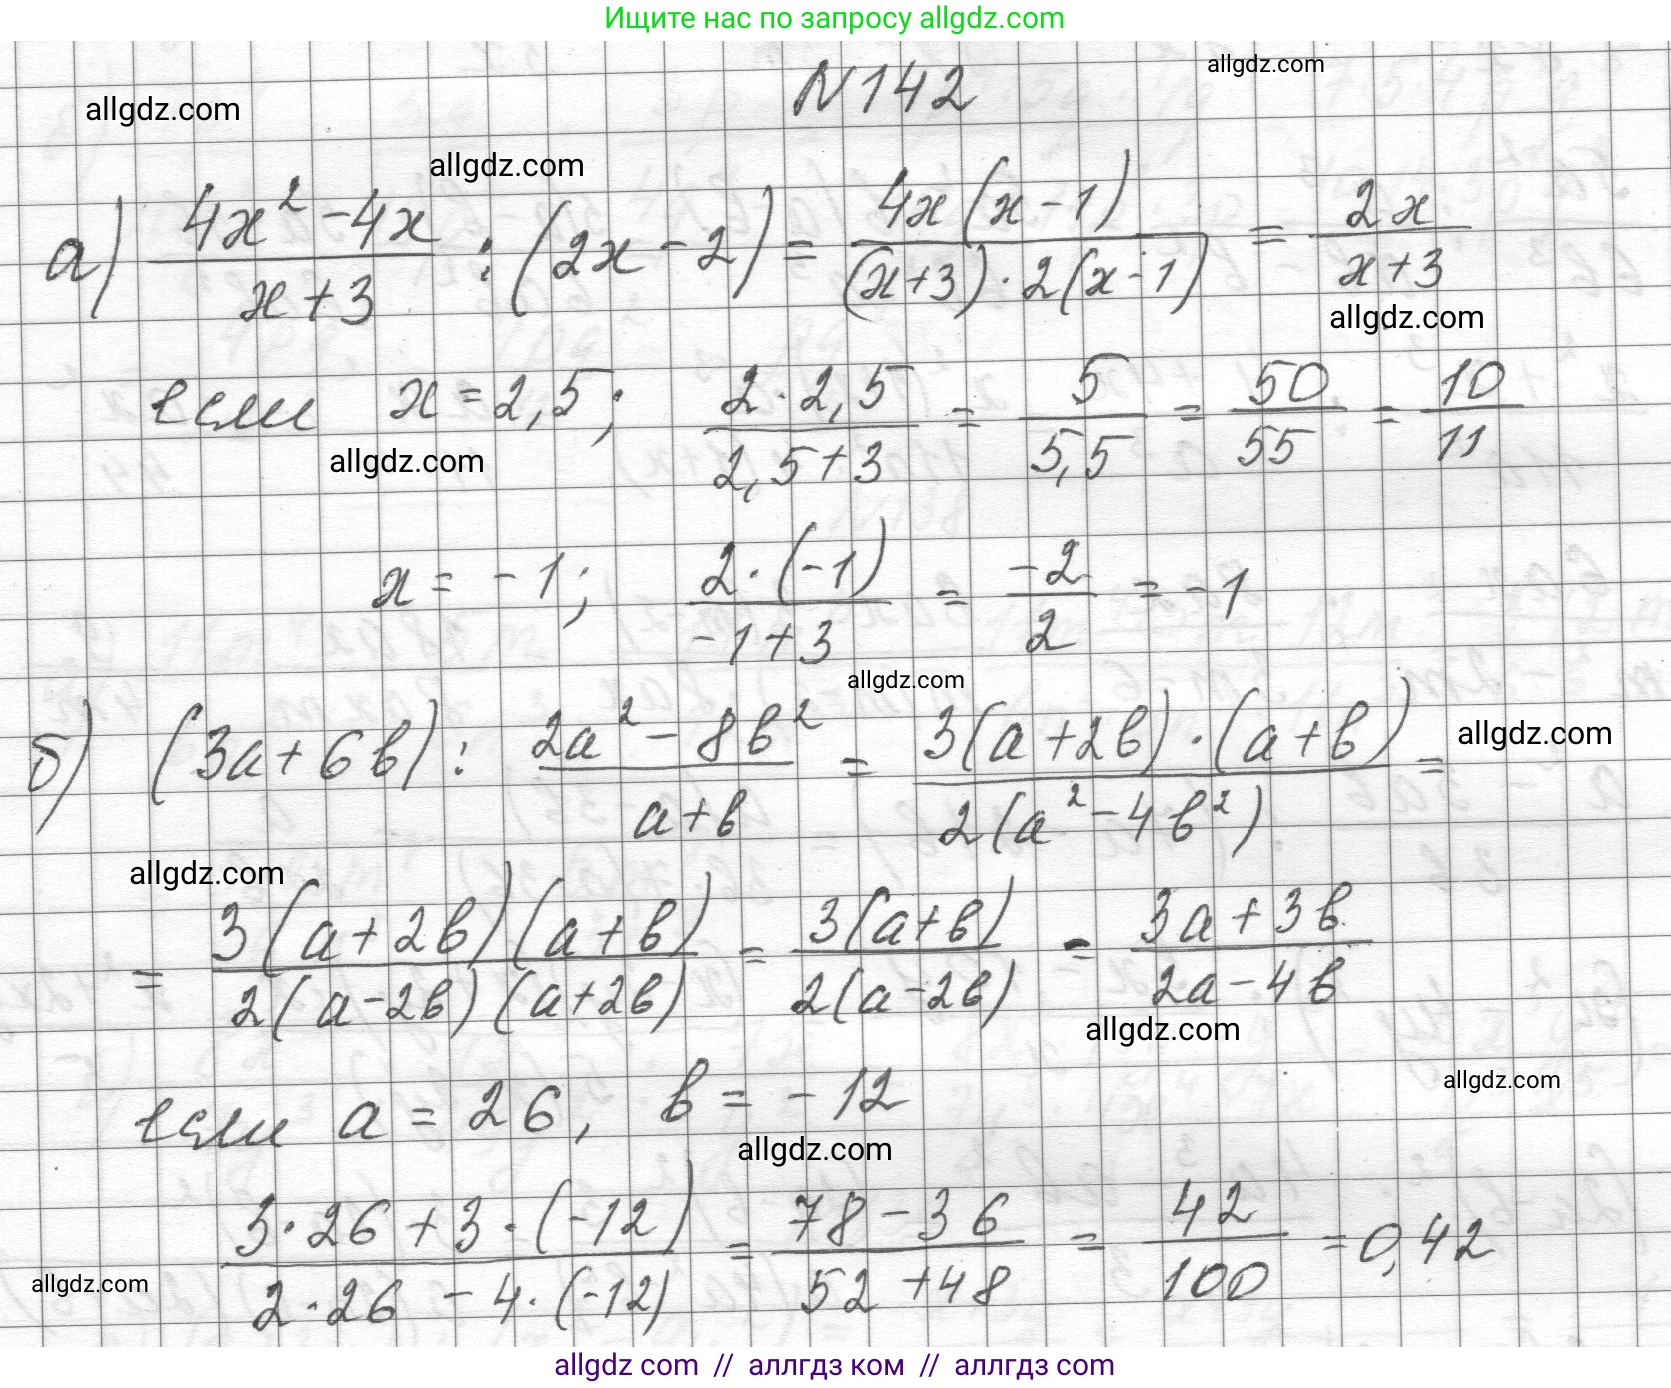 Ищите нас по запросу allgdz.com
allgdz.com
N 142
allgdz.com
allgdz.com
а) (4x² - 4x)/(x + 3) : (2x - 2) = (4x(x - 1))/((x + 3) · 2(x - 1)) = 2x/(x + 3)
allgdz.com
если x = 2,5; (2 · 2,5)/(2,5 + 3) = 5/5,5 = 50/55 = 10/11
allgdz.com
x = -1; (2 · (-1))/(-1 + 3) = -2/2 = -1
allgdz.com
б) (3a + 6b) : (2a² - 8b²)/(a + b) = (3(a + 2b) · (a + b))/(2(a² - 4b²)) =
allgdz.com
allgdz.com
= (3(a + 2b)(a + b))/(2(a - 2b)(a + 2b)) = (3(a + b))/(2(a - 2b)) = (3a + 3b)/(2a - 4b)
allgdz.com
allgdz.com
если a = 26, b = -12
allgdz.com
(3 · 26 + 3 · (-12))/(2 · 26 - 4 · (-12)) = (78 - 36)/(52 + 48) = 42/100 = 0,42
allgdz.com
allgdz com // аллгдз ком // аллгдз com